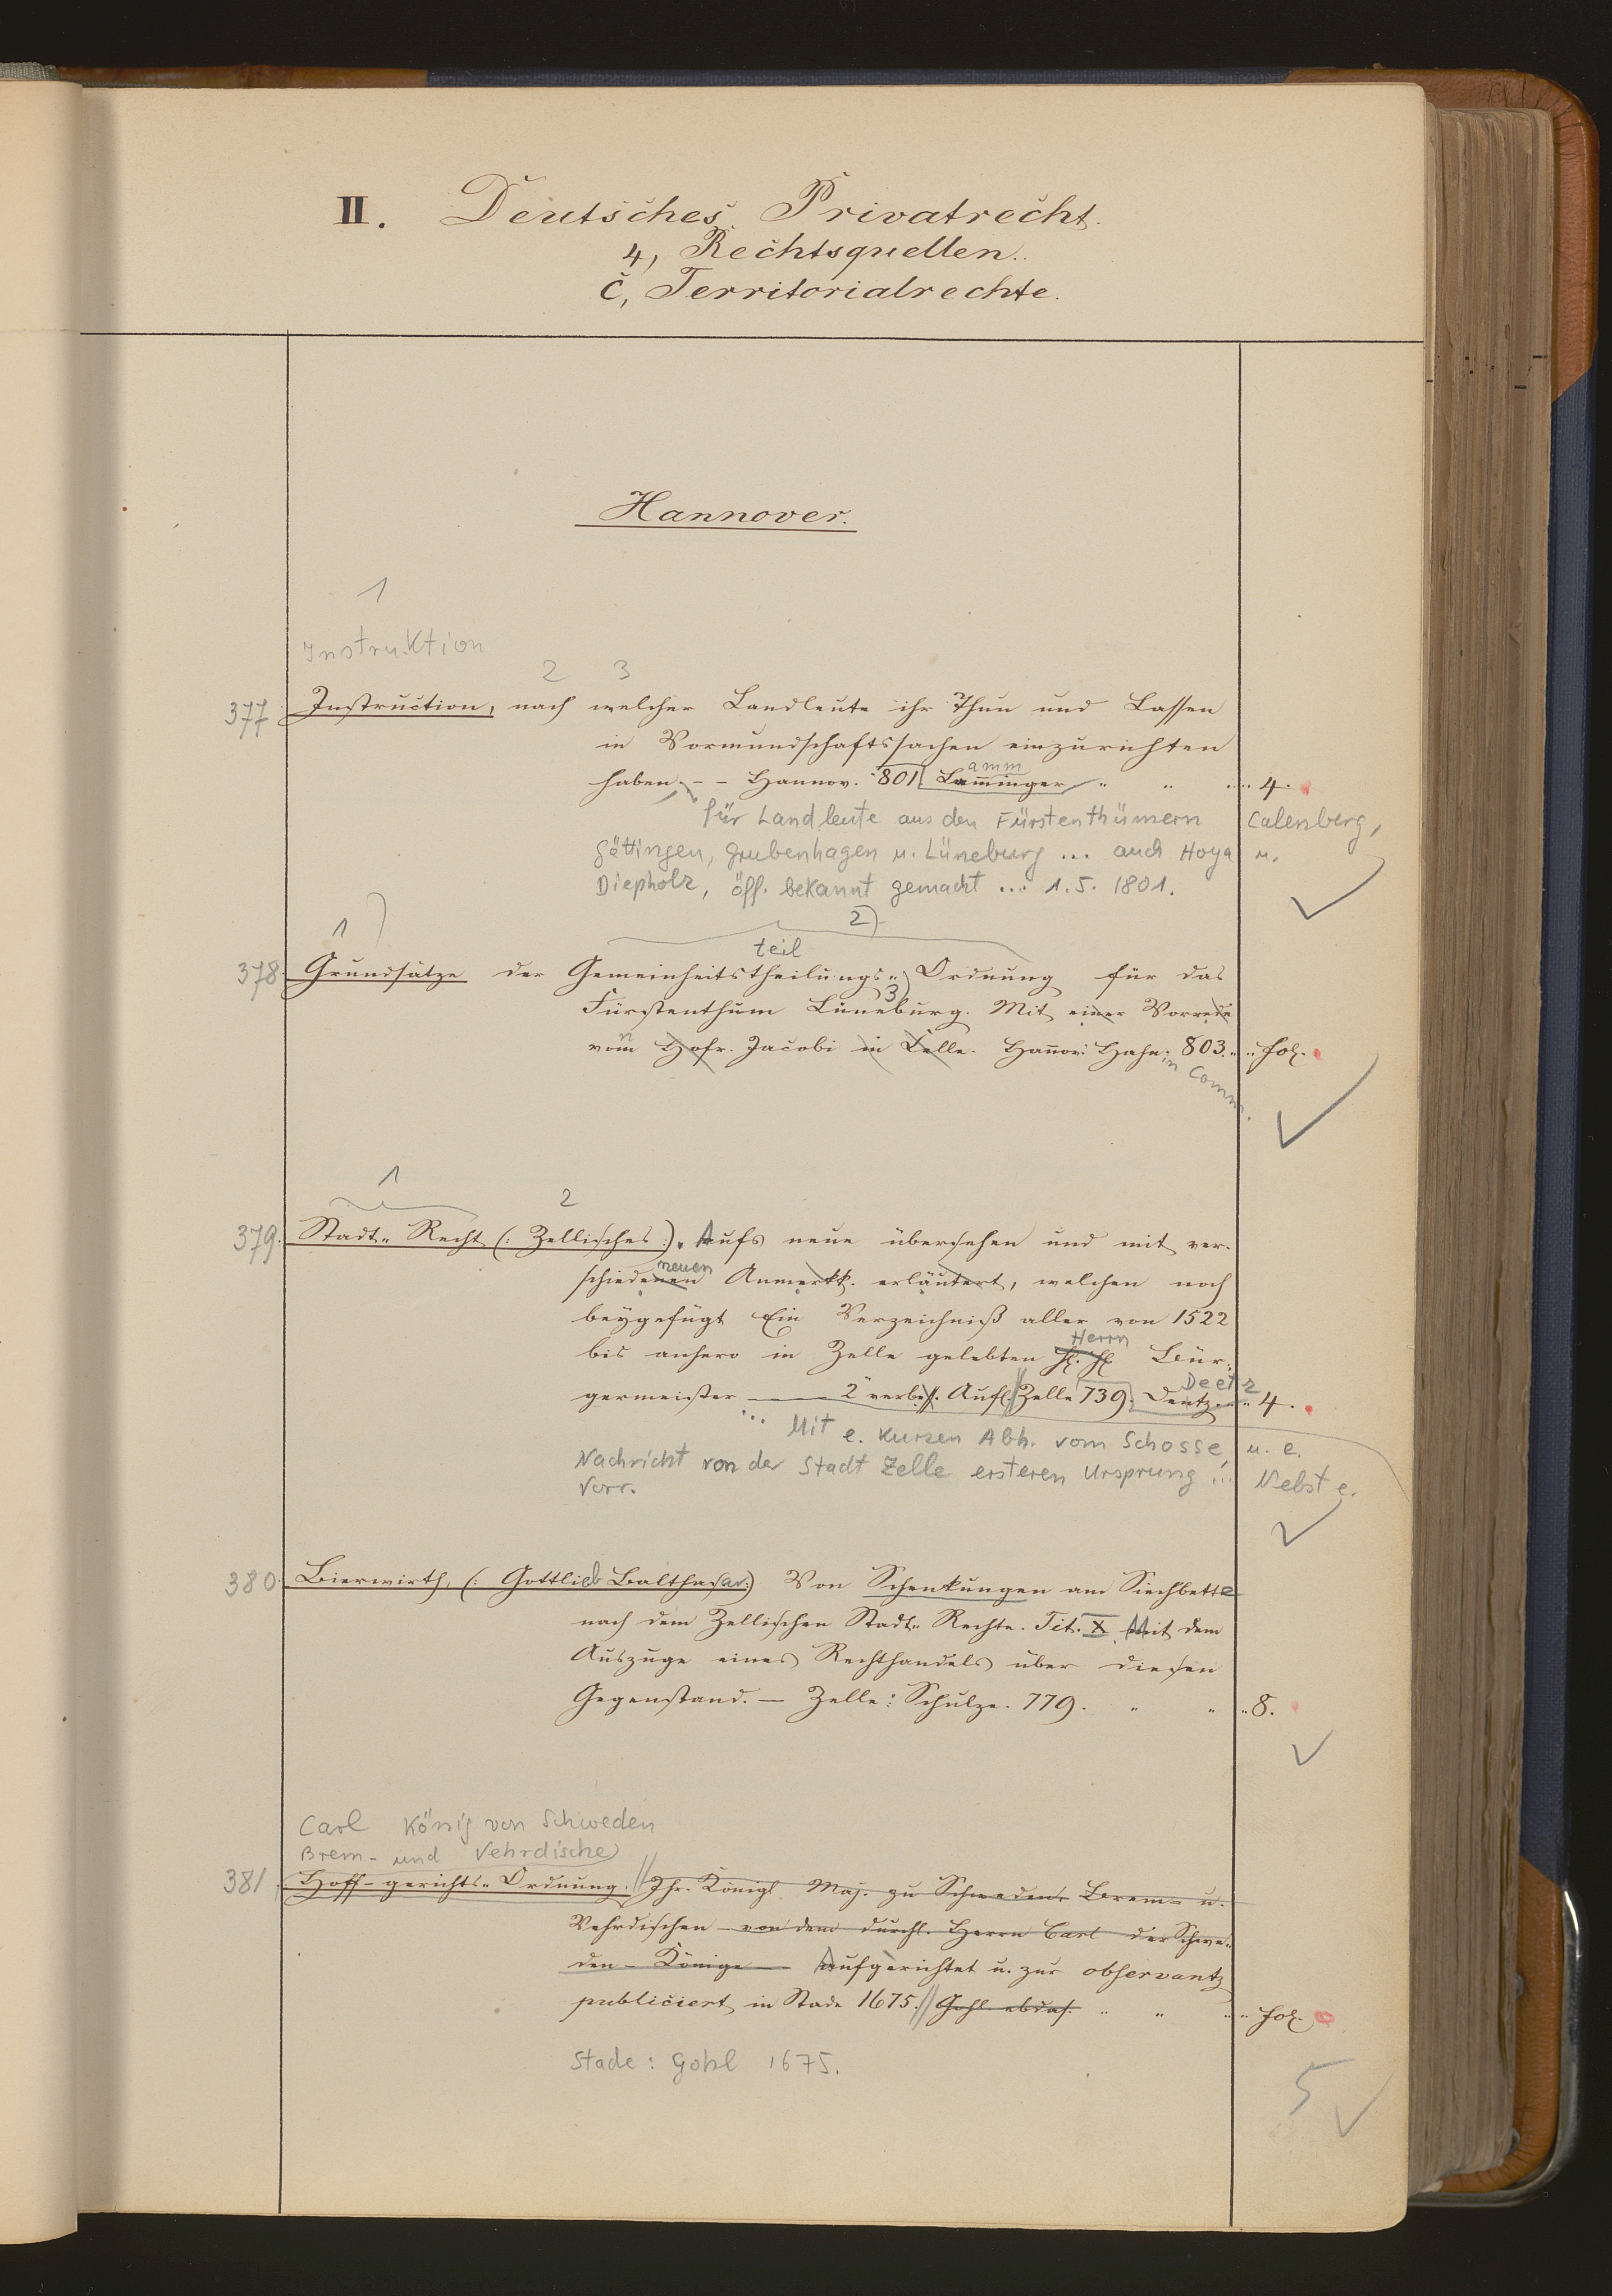 II. Deutsches Privatrecht.
4, Rechtsquellen.
c, Territorialrechte.
Hannover.
1
Instruktion
2 3
377 Instruction, nach welcher Landleute ihr Thun und Lassen
in Vormundschaftssachen einzurichten
amm
haben. – – Hannov. 801 Lam̅inger „ „ 4.
für Landleute aus den Fürstenthümern Calenberg,
Göttingen, Grubenhagen u. Lüneburg ... auch Hoya u.
Diepholz, öff. bekannt gemacht ... 1.5. 1801.
1 2)
teil
378 Grundsätze der Gemeinheitstheilungs„ Ordnung für das
3
Fürstenthum Lüneburg. Mit einer Vorrede
n
vom Hofr. Jacobi in Celle. Han̅ov: Hahn: 803. „ fol.
in Comm.
1 2
379. Stadt„ Recht (: Zellisches :). Aufs neue übersehen und mit ver-
neuen
schiedenen Anmerkk. erläutert, welchen noch
beygefügt Ein Verzeichniß aller von 1522
Herrn
bis anhero in Zelle gelebten H. H. Bür-
Deetz
germeister — 2 verbess. Aufl. Zelle 739. Deutz „ 4.
... Mit e. kurzen Abh. vom Schosse, u. e.
Nachricht von der Stadt Zelle ersteren Ursprung ... Nebst e.
Vorr.
380. Bierwirth, (: Gottlieb Balthasar:) Von Schenkungen am Siechbette
nach dem Zellischen Stadt„ Rechte. Tit. X. Mit dem
Auszuge eines Rechthandels über diesen
Gegenstand. — Zelle: Schulze. 779. „ „ 8.
Carl König von Schweden
Brem- und Vehrdische
381. Hoff-gerichts„ Ordnung. Ihr. Königl. Maj. zu Schweden, Brem- u.
Vehrdischen – von dem durchl. Herrn Carl der Schwe-
den – Könige — Aufgerichtet u. zur observantz
publiciert in Stade 1675. Gohl ebdas. „ „ „ fol.
Stade: Gohl 1675.
5